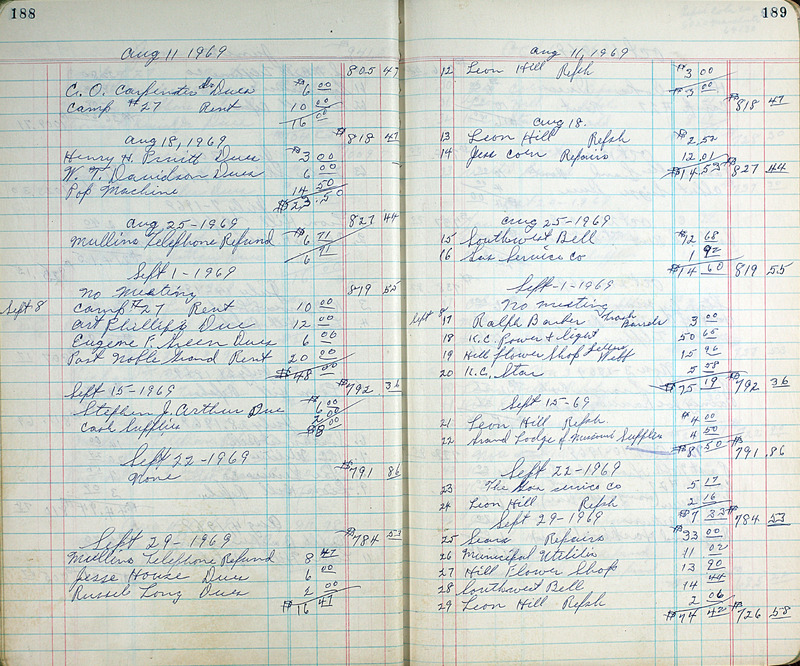 188
Aug 11 1969
805 47
C. O. Carpenter Dues $6 00
Camp #27 Rent 10 00
16 00
Aug 18, 1969 $818 47
Henry H. Pruitt Dues $3 00
W. T. Davidson Dues 6 00
Pop Machine 14 50
$23.50
Aug 25-1969 827 44
Mullins Telephone Refund $6 71
6 71
Sept 1-1969
No Meeting 819 55
Sept 8 Camp #27 Rent 10 00
Art Phillips Due 12 00
Eugene F. Green Dues 6 00
Past Noble Grand Rent 20 00
$48 00
Sept 15-1969 $792 36
Stephen J. Arthur Due $6 00
Cash Supplies 2 00
$8 00
Sept 22-1969 $791 86
None
Sept 29-1969 $784 53
Mullins Telephone Refund 8 47
Jesse House Dues 6 00
Russel Long Dues 2 00
$16 47
189
Aug 11, 1969
12 Leon Hill Refsh $3 00
$3 00
$818 47
Aug 18.
13 Leon Hill Refsh $2.52
14 Jess Corn Repairs 12.01
$14.53 $827 44
Aug 25-1969
15 Southwest Bell $12 68
16 Gas Service Co 1 92
$14 60 819 55
Sept-1-1969
No meeting
Sept 8
17 Ralph Barker Trash Barrels 3 00
18 K.C. Power & Light 50 65
19 Hill Flower Shop Webb 15 96
20 K.C. Star 5 58
$75 19 $792 36
Sept 15-69
21 Leon Hill Refsh $4 00
22 Grand Lodge of Missouri Supplies 4 50
$8 50 $791.86
Sept 22-1969
23 The Gas service co 5 17
24 Leon Hill Refsh 2 16
Sept 29-1969 $7 33 $784 53
25 Sears Repairs $33 00
26 Municipal Utilities 11 02
27 Hill Flower Shop 13 90
28 Southwest Bell 14 44
29 Leon Hill Refsh 2 06
$74 42 $726 58